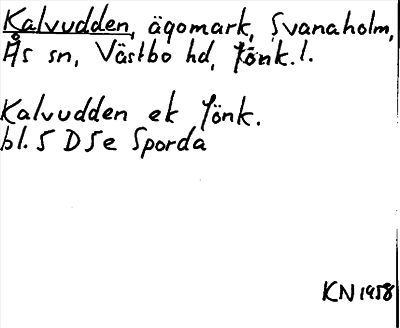 Kalvudden, ägomark, Svanaholm,
Ås sn, Västbo hd, Jönk. l.
Kalvudden ek Jönk.
bl. 5 D 5e Sporda
KN 1958